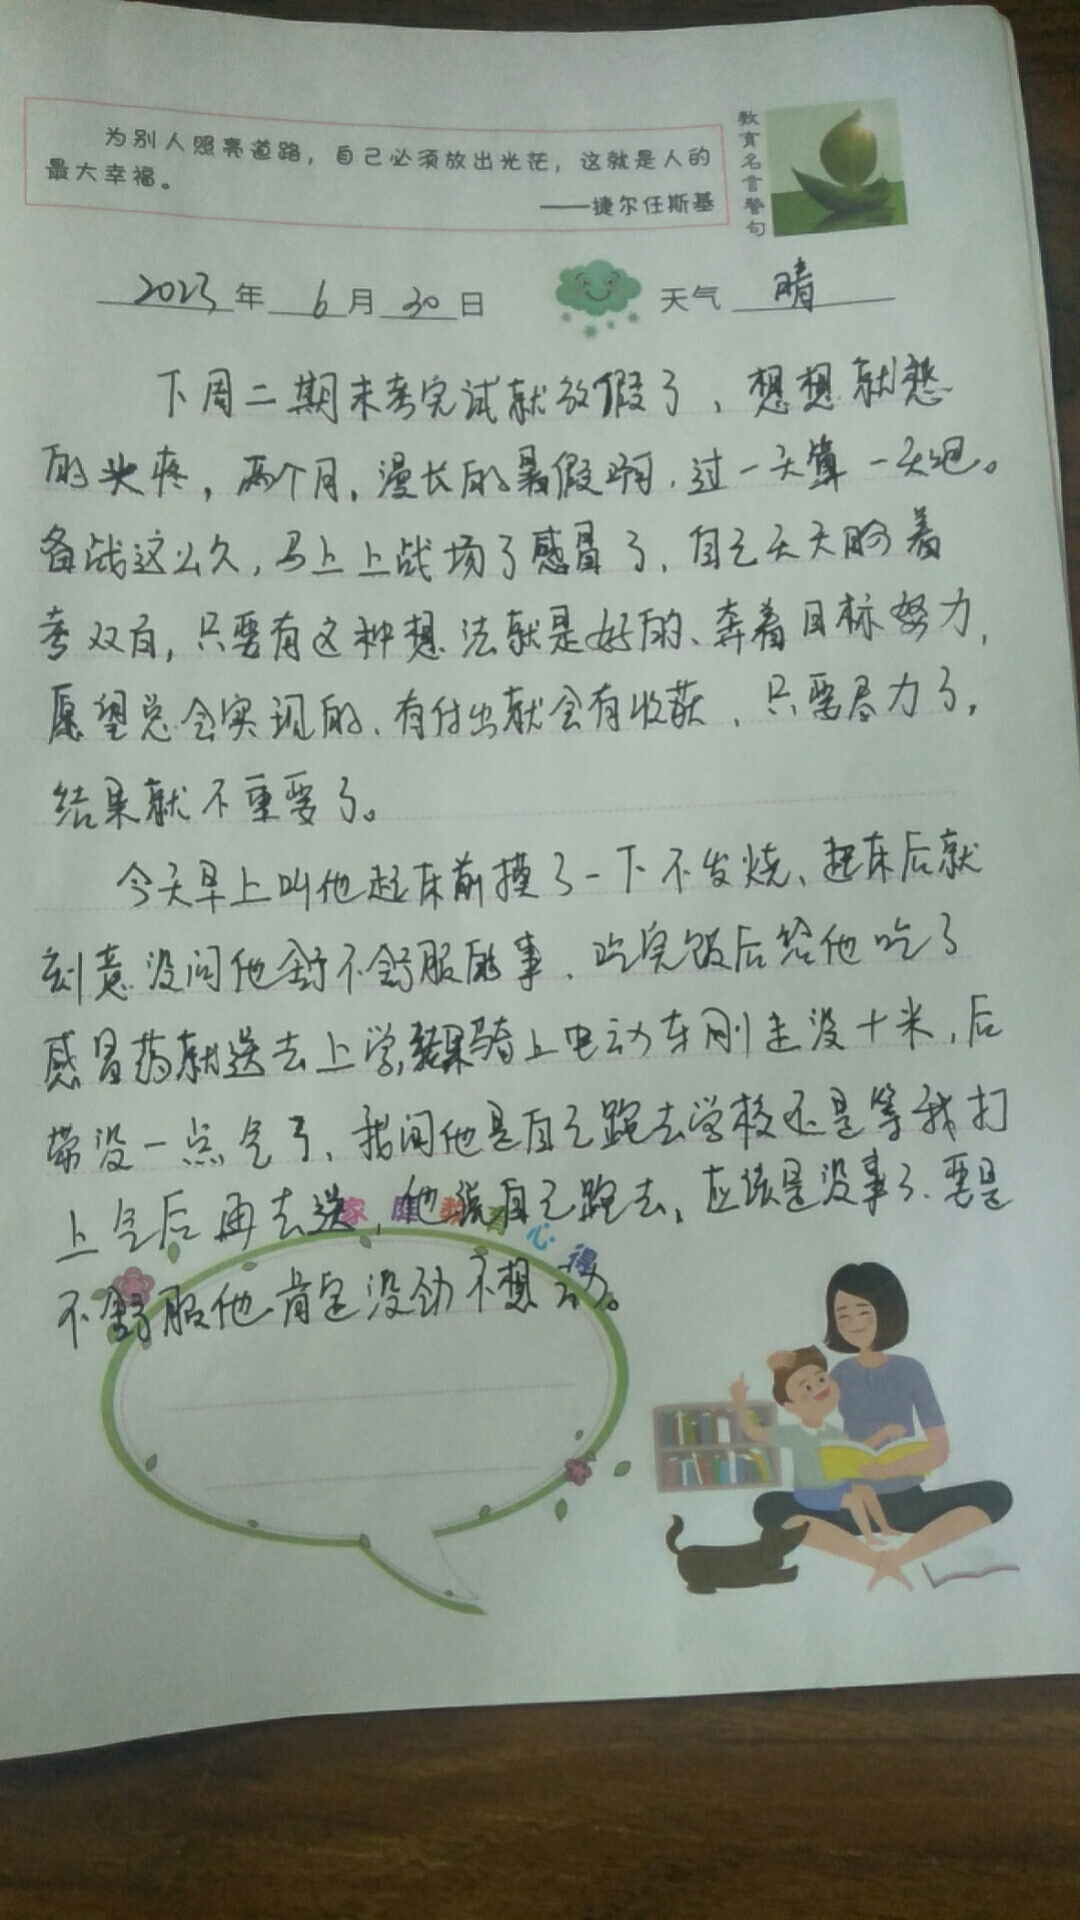 为别人照亮道路，自己必须放出光茫，这就是人的
最大幸福。
——捷尔任斯基
教育名言警句
2023年 6月30日 天气 晴
下周二期末考完试就放假了，想想就愁
的头疼，两个月，漫长的暑假啊，过一天算一天吧。
备战这么久，马上上战场了感冒了，自己天天盼着
考双百，只要有这种想法就是好的、奔着目标努力，
愿望总会实现的、有付出就会有收获，只要尽力了，
结果就不重要了。
今天早上叫他起床前摸了一下不发烧、起床后就
刻意没问他舒不舒服的事、吃完饭后给他吃了
感冒药就送去上学，结果骑上电动车刚走没十米，后
带没一点气了、我问他是自己跑去学校还是等我打
上气后再去送，他说自己跑去，应该是没事了、要是
家庭教育心得
不舒服他肯定没劲不想动。